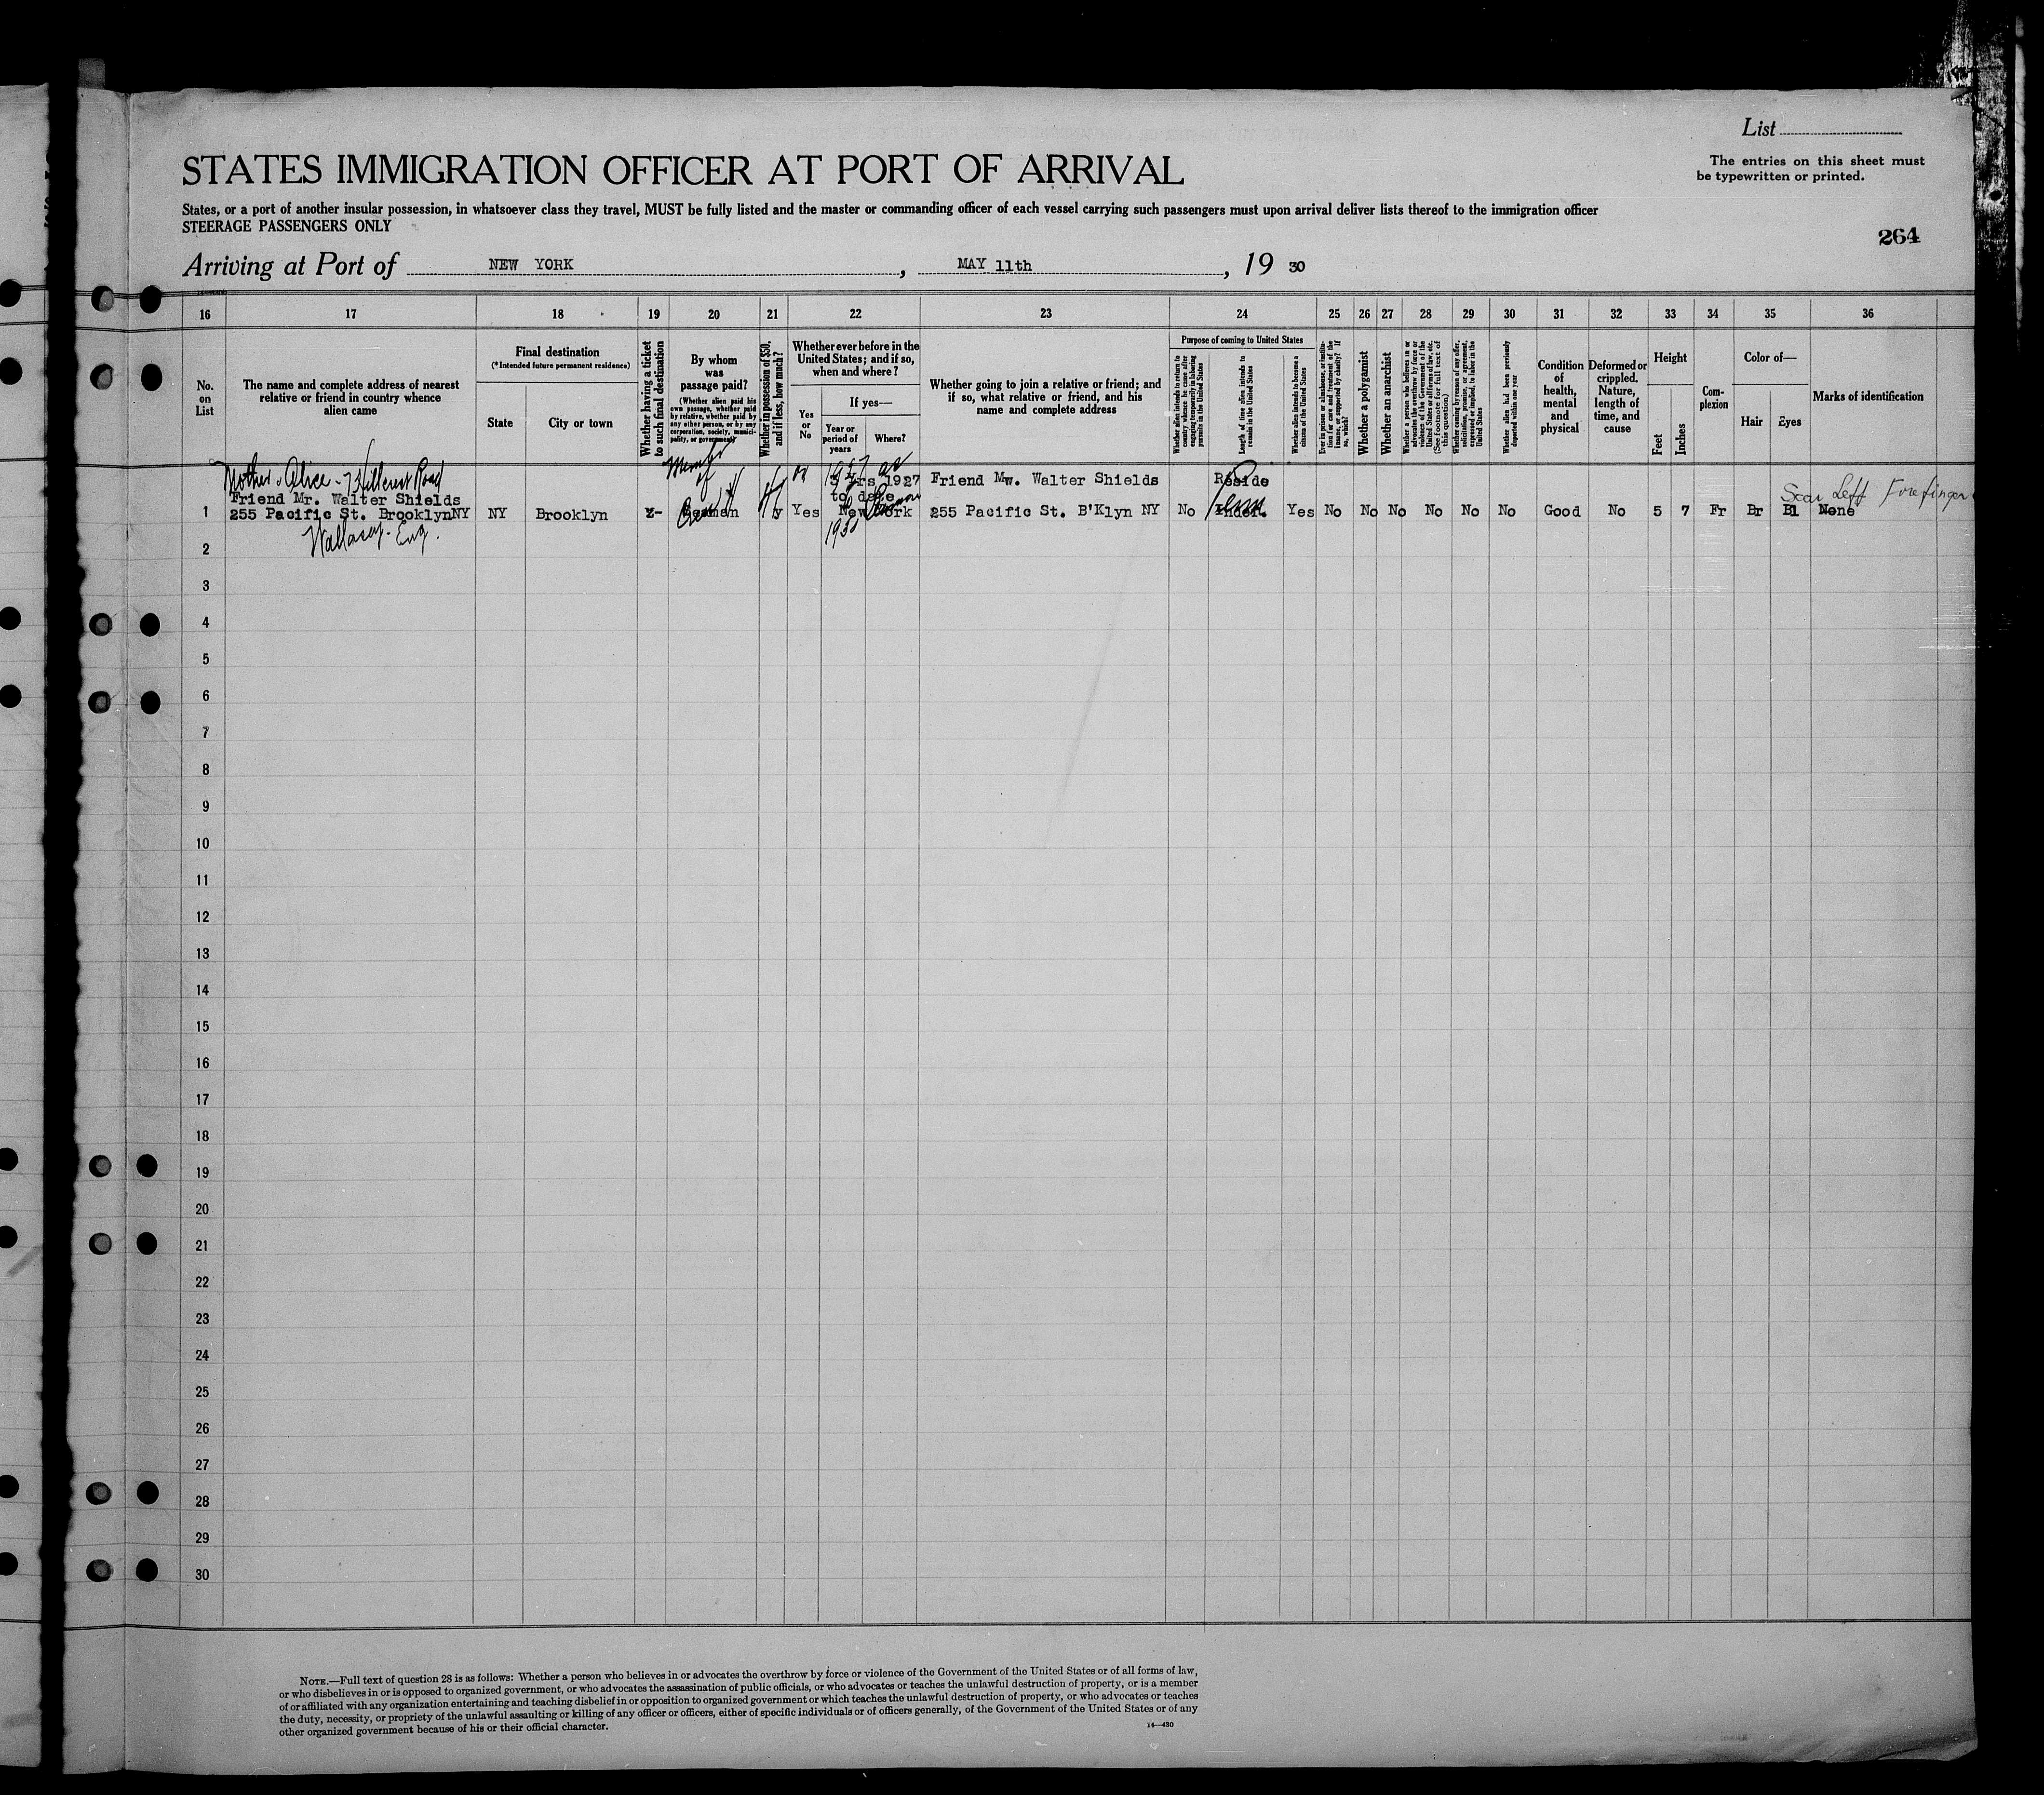 List
The entries on this sheet must
be typewritten or printed.
STATES IMMIGRATION OFFICER AT PORT OF ARRIVAL
States, or a port of another insular possession, in whatsoever class they travel, MUST be fully listed and the master or commanding officer of each vessel carrying such passengers must upon arrival deliver lists thereof to the immigration officer
STEERAGE PASSENGERS ONLY
264
Arriving at Port of NEW YORK , MAY 11th , 19 30
16 17 18 19 20 21 22 23 24 25 26 27 28 29 30 31 32 33 34 35 36
No. on List
The name and complete address of nearest
relative or friend in country whence
alien came
Final destination
(*Intended future permanent residence)
State
City or town
Whether having a ticket
to such final destination
By whom
was
passage paid?
(Whether alien paid his
own passage, whether paid
by relative, whether paid by
any other person, or by any
corporation, society, munici-
pality, or government)
Whether in possession of $50,
and if less, how much?
Whether ever before in the
United States; and if so,
when and where?
Yes
or
No
If yes—
Year or
period of
years
Where?
Whether going to join a relative or friend; and
if so, what relative or friend, and his
name and complete address
Purpose of coming to United States
Whether alien intends to return to
country whence he came after
engaging temporarily in laboring
pursuits in the United States
Length of time alien intends to
remain in the United States
Whether alien intends to become a
citizen of the United States
Ever in prison or almshouse, or institu-
tion for care and treatment of the
insane, or supported by charity? If
so, which?
Whether a polygamist
Whether an anarchist
Whether a person who believes in or
advocates the overthrow by force or
violence of the Government of the
United States or all forms of law, etc.
(See footnote for full text of
this question)
Whether coming by reason of any offer,
solicitation, promise, or agreement,
expressed or implied, to labor in the
United States
Whether alien had been previously
deported within one year
Condition
of
health,
mental
and
physical
Deformed or
crippled.
Nature,
length of
time, and
cause
Height
Feet
Inches
Com-
plexion
Color of—
Hair
Eyes
Marks of identification
Mother. Alice - 7 Hillcrest Road
Friend Mr. Walter Shields
255 Pacific St. BrooklynNY
Wallasey. Eng.
1 NY Brooklyn
Member
of
Crew
Yes
1927 as
3 Yrs 1927
to date
New York
1930
Friend Mw. Walter Shields
255 Pacific St. B'Klyn NY
No
Reside
Perm
Yes No No No No No No Good No 5 7 Fr Br Bl None
Scar Left Forefinger
2
3
4
5
6
7
8
9
10
11
12
13
14
15
16
17
18
19
20
21
22
23
24
25
26
27
28
29
30
NOTE.—Full text of question 28 is as follows: Whether a person who believes in or advocates the overthrow by force or violence of the Government of the United States or of all forms of law,
or who disbelieves in or is opposed to organized government, or who advocates the assassination of public officials, or who advocates or teaches the unlawful destruction of property, or is a member
of or affiliated with any organization entertaining and teaching disbelief in or opposition to organized government or which teaches the unlawful destruction of property, or who advocates or teaches
the duty, necessity, or propriety of the unlawful assaulting or killing of any officer or officers, either of specific individuals or of officers generally, of the Government of the United States or of any
other organized government because of his or their official character.
14—430